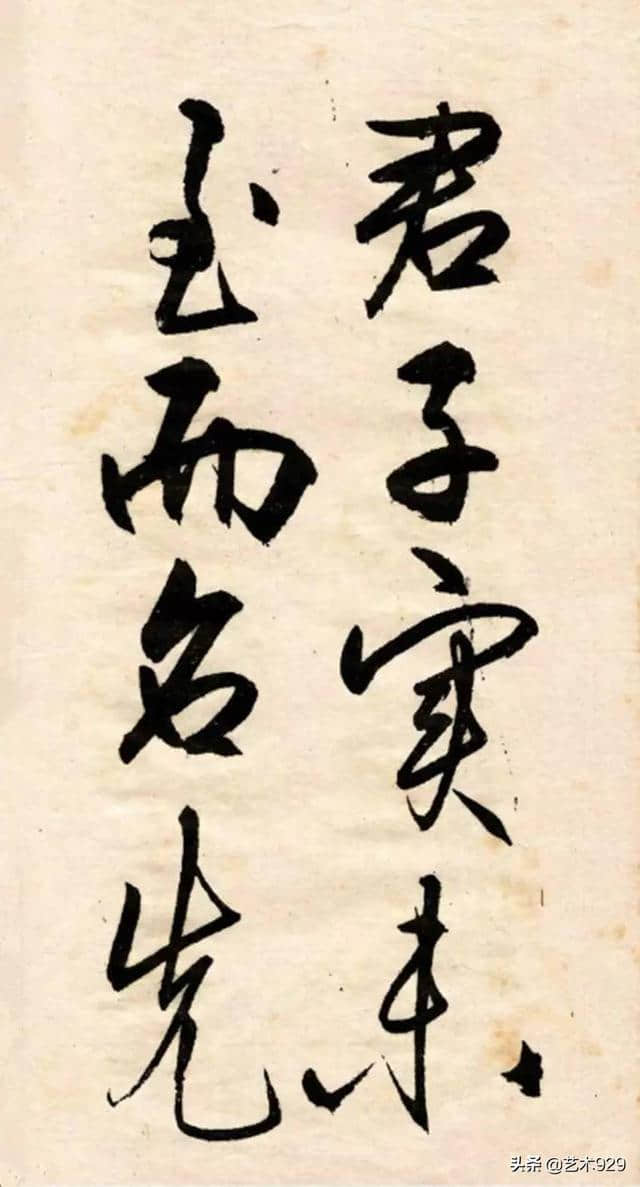 君子实未
至而名先
头条 @艺术929